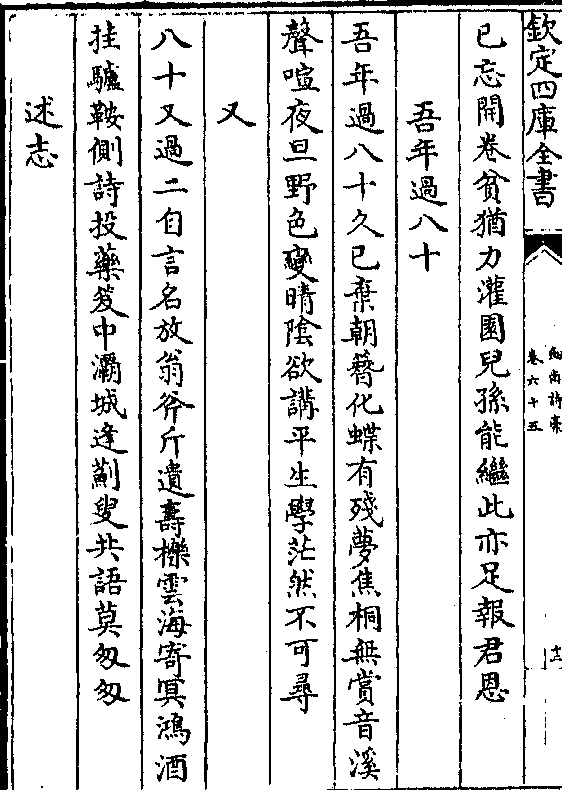 欽定四庫全書
劍南詩稾
卷六十五
十二
已忘開卷貧猶力灌園兒孫能繼此亦足報君恩
吾年過八十
吾年過八十久已棄朝簪化蝶有殘夢焦桐無賞音溪
聲喧夜旦野色變晴陰欲講平生學茫然不可尋
又
八十又過二自言名放翁斧斤遺壽櫟雲海寄冥鴻酒
挂驢鞍側詩投藥笈中灞城逢薊叟共語莫匆匆
述志